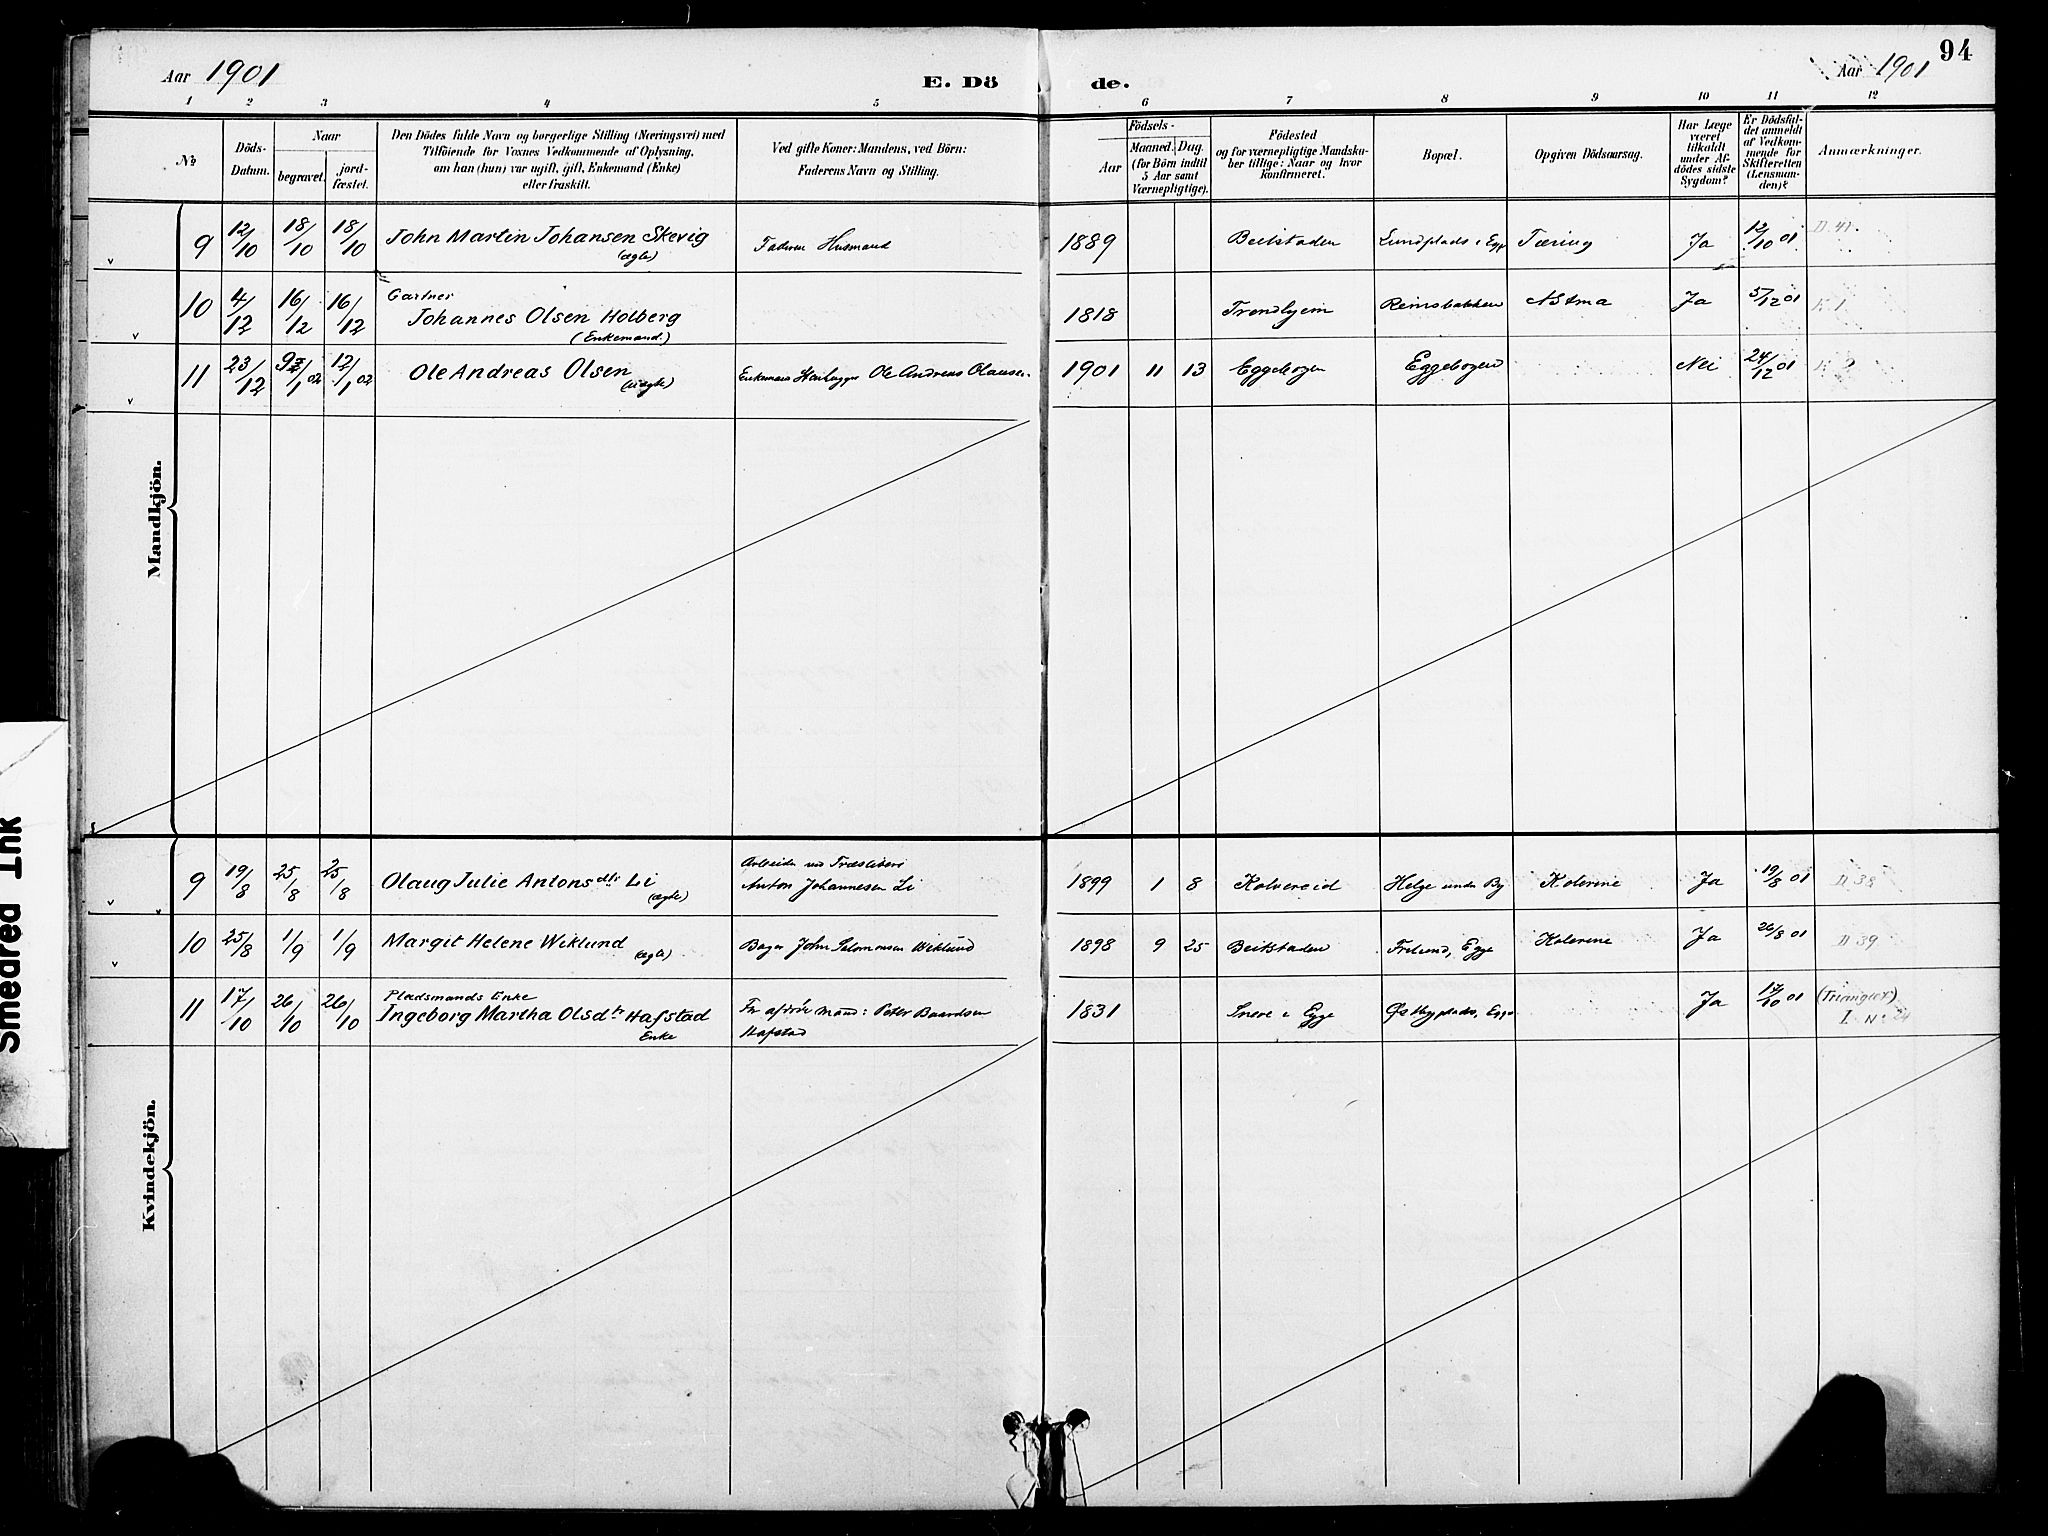 94
Aar 1901
E. Dö
de.
Aar 1901
1 2 3 4 5 6 7 8 9 10 11 12
No
Döds-
Datum.
Naar
begravet.
jord-
fæstet.
Den Dödes fulde Navn og borgerlige Stilling (Næringsvei) med
Tilföiende for Voxnes Vedkommende af Oplysning,
om han (hun) var ugift, gift, Enkemand (Enke)
eller fraskilt.
Ved gifte Koner: Mandens, ved Börn:
Faderens Navn og Stilling.
Födsels-
Aar
Maaned.
Dag.
(for Börn indtil
5 Aar samt
Værnepligtige).
Födested
og for værnepligtige Mandska-
ber tillige: Naar og hvor
konfirmeret.
Bopæl.
Opgiven Dödsaarsag.
Har Læge
været
tilkaldt
under Af-
dödes sidste
Sygdom?
Er Dödsfal-
det anmeldt
af Vedkom-
mende for
Skifteretten
(Lensman-
den)?
Anmærkninger.
Mandkjön.
9 12/10 18/10 18/10 John Martin Johansen Skevig
(ægte)
Faderen Husmand
1889 Beitstaden Lundplads i Egge Tæring Ja 12/10 01
10 4/12 16/12 16/12 Gartner
Johannes Olsen Holberg
(Enkemand.)
1818 Trondhjem Reinsbakken Astma Ja 5/12 01
11 23/12 1/1 02 12/1 02 Ole Andreas Olsen
(uægte)
Enkemand Ole Andreas Olausen.
1901 11 13 Eggebogen Eggebogen Nei 24/12 01
Kvindekjön.
9 19/8 25/8 25/8 Olaug Julie Antonsdtr Li
(ægte)
Arbeider ved Træsliberi
Anton Johannesen Li
1899 1 8 Kolvereid Helge under By Kolerine Ja 19/8 01 II 38
10 25/8 1/9 1/9 Margit Helene Wiklund
(ægte)
Bager John Salomonsen Wiklund
1898 9 25 Beitstaden Frilund, Egge Kolerine Ja 26/8 01 II 39
11 17/10 26/10 26/10 Pladsmands Enke
Ingeborg Martha Olsdtr Hafstad
Enke
For afdöde Mand: Peter Baardsen
Hafstad
1831 i Egge Østbyplads, Egge Ja 17/10 01 (Trianglet)
I No 24
Smeared Ink